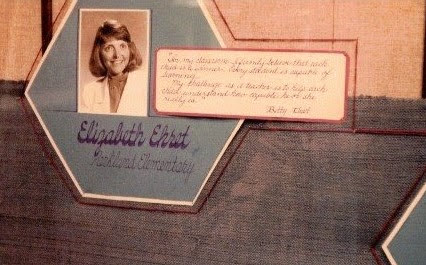 "In my classroom I firmly believe that each
child is a winner. Every student is capable of
learning.
My challenge as a teacher is to help each
child understand how capable he or she
really is."
Betty Ehret
Elizabeth Ehret
Kirkland Elementary